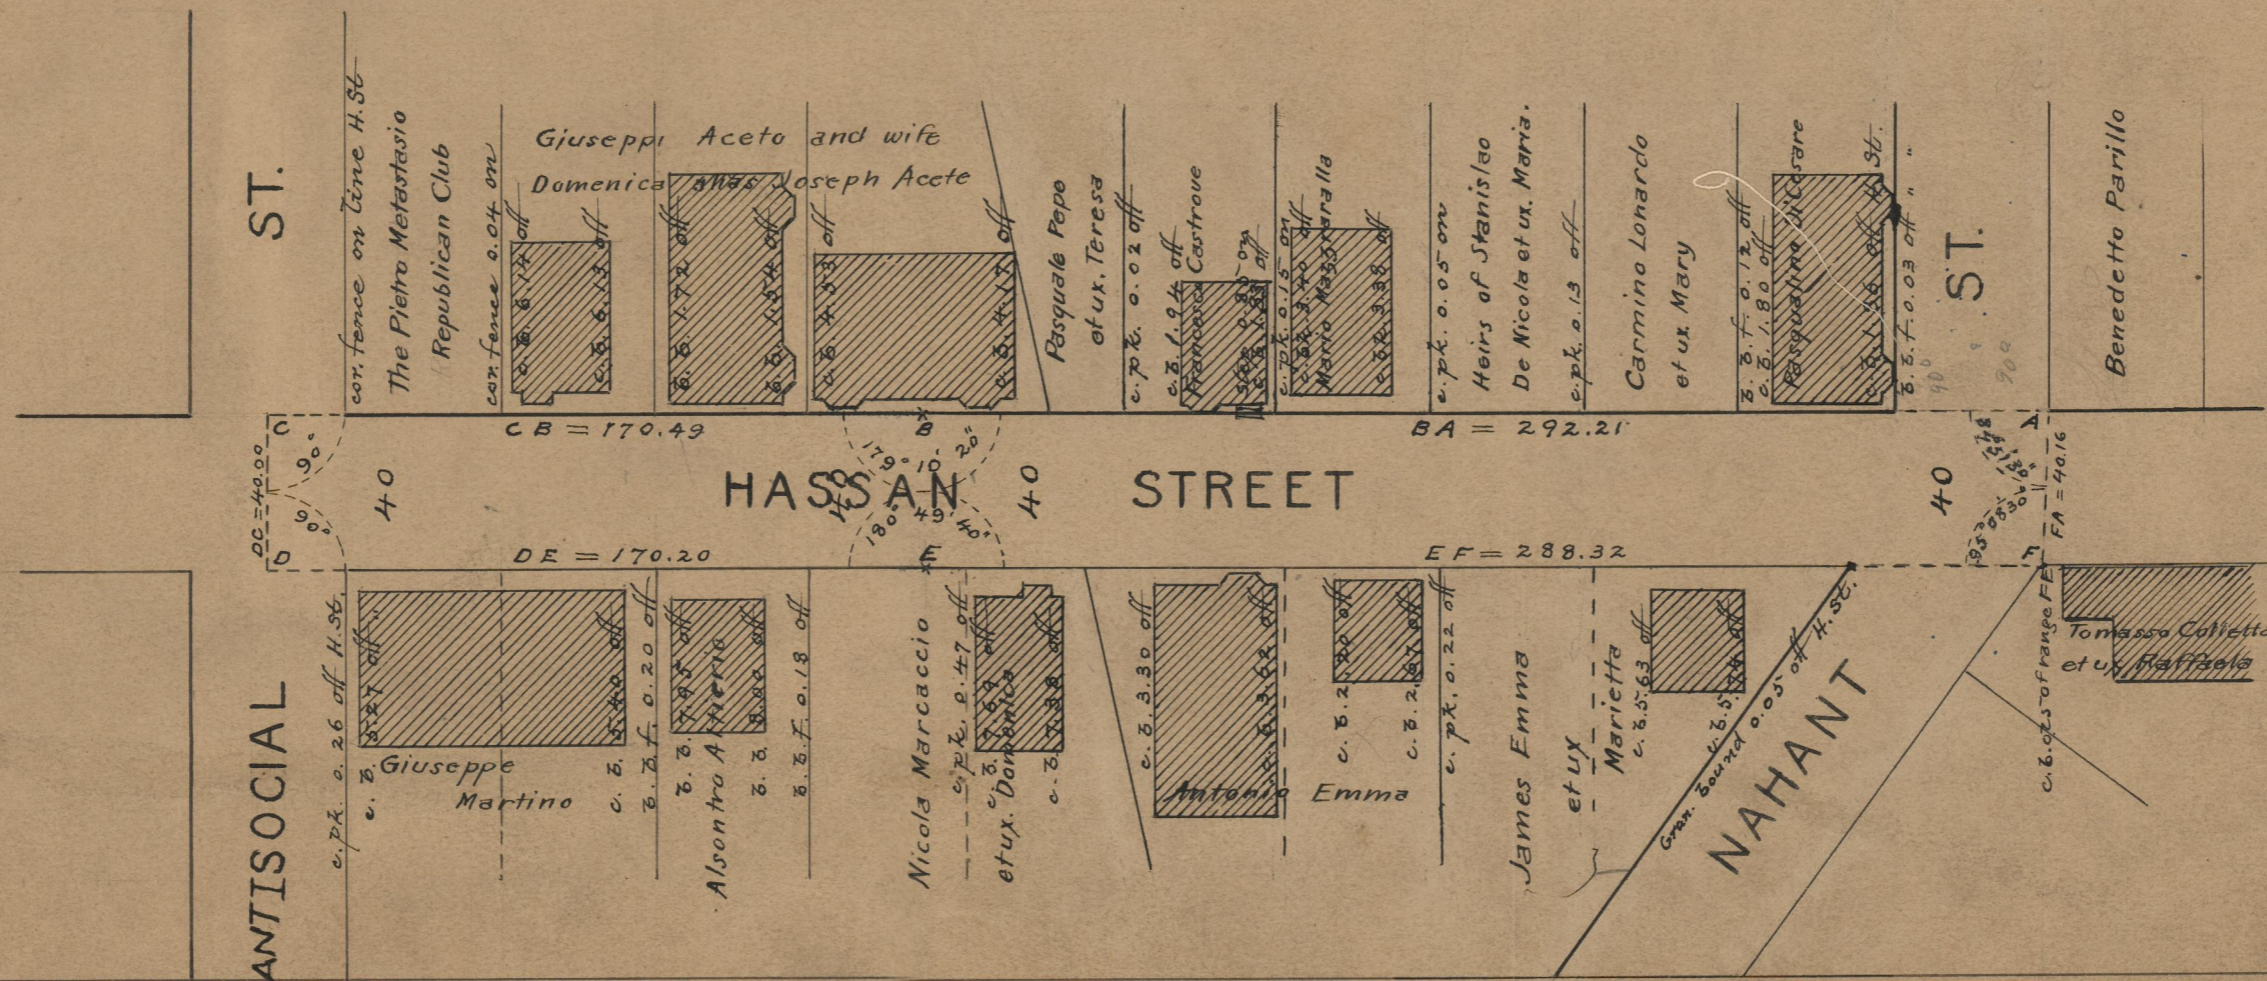 ST.
cor. fence on line H. St
The Pietro Metastasio
Republican Club
cor. fence 0.04 on
Giuseppi Aceto and wife
Domenica alias Joseph Acete
c. b. 6.14 off
c. b. 6.13 off
b. b. 1.72 off
b. b. 1.54 off
c. b. 4.53 off
c. b. 4.17 off
Pasquale Pepo
et ux. Teresa
c. pk. 0.02 off
c. b. 1.94 off
Francesco Castrove
step 0.85 on
c. b. 1.83 off
c. pk. 0.15 on
c. bk. 3.40 off
Mario
c. bk. 3.38 off
c. pk. 0.05 on
Heirs of Stanislao
De Nicola et ux. Maria.
c. pk. 0.13 off
Carmino Lonardo
et ux Mary
b. b. f. 0.12 off
c. b. 1.80 off
Pasqualino DiCesare
c. b. 1.56 off H St.
b. b. f. 0.03 off " "
90°
90°
ST.
Benedetto Parillo
C
CB = 170.49
B
BA = 292.21
A
90°
DC = 40.00
40
179° 10' 20"
HASSAN STREET
40
40
40
FA = 40.16
90°
180° 49' 40"
95° 08' 30"
D
DE = 170.20
E
EF = 288.32
F
ANTISOCIAL
c. pk. 0.26 off H. St.
c. b. 5.27 off "
Giuseppe
Martino
c. b. 5.40 off
b. b. f. 0.20 off
b. b. 7.95 off
Alsontro Altierio
b. b. 8.00 off
b. b. f. 0.18 off
Nicola Marcaccio
c. pk. 0.47 off
c. b. 7.69 off
et ux. Domenica
c. b. 7.38 off
c. b. 3.30 off
c. b. 3.62 off
Antonio Emma
c. b. 2.20 off
c. b. 2.67 off
c. pk. 0.22 off
James Emma
et ux
Marietta
c. b. 5.63 off
c. b. 5.74 off
Gran. bound 0.05 off H. St.
NAHANT
c. b. 0.25 of range FE
Tomasso Colietta
et ux Raffaela